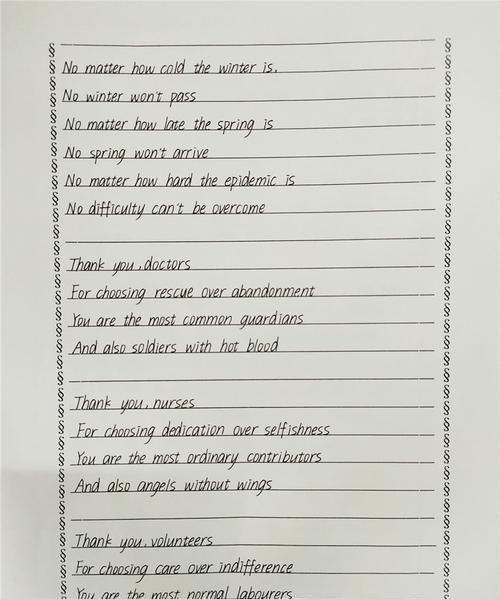 No matter how cold the winter is,
No winter won't pass
No matter how late the spring is
No spring won't arrive
No matter how hard the epidemic is
No difficulty can't be overcome
Thank you, doctors
For choosing rescue over abandonment
You are the most common guardians
And also soldiers with hot blood
Thank you, nurses
For choosing dedication over selfishness
You are the most ordinary contributors
And also angels without wings
Thank you, volunteers
For choosing care over indifference
You are the most normal labourers